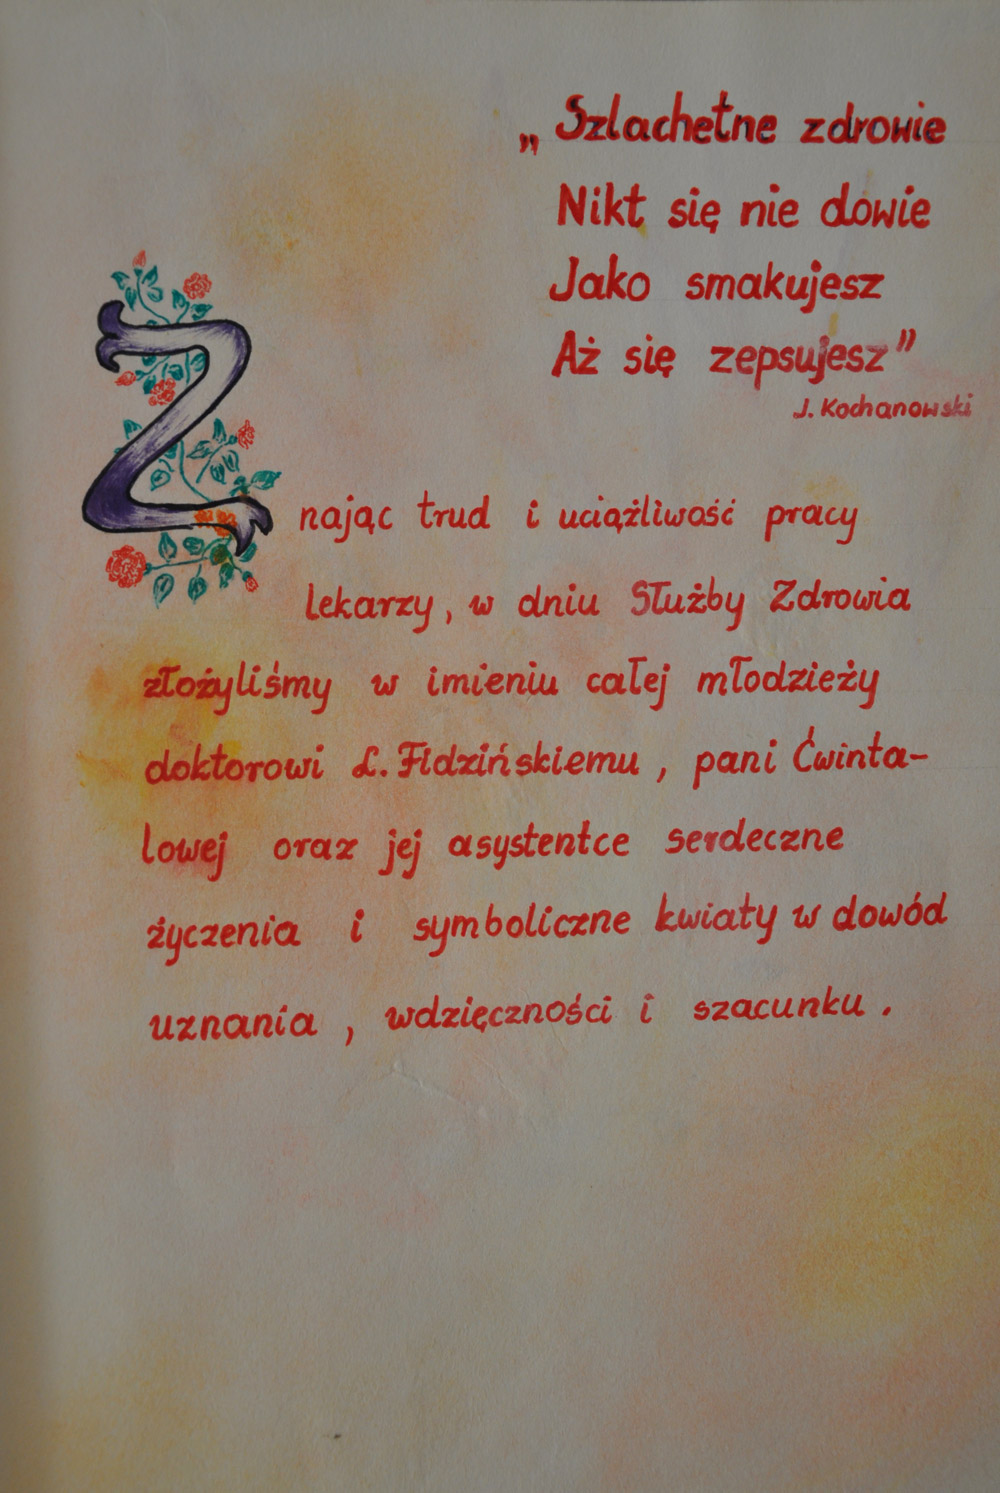 „Szlachetne zdrowie
Nikt się nie dowie
Jako smakujesz
Aż się zepsujesz”
J. Kochanowski
Znając trud i uciążliwość pracy
lekarzy, w dniu Służby Zdrowia
złożyliśmy w imieniu całej młodzieży
doktorowi L. Fidzińskiemu, pani Ćwinta-
lowej oraz jej asystentce serdeczne
życzenia i symboliczne kwiaty w dowód
uznania, wdzięczności i szacunku.